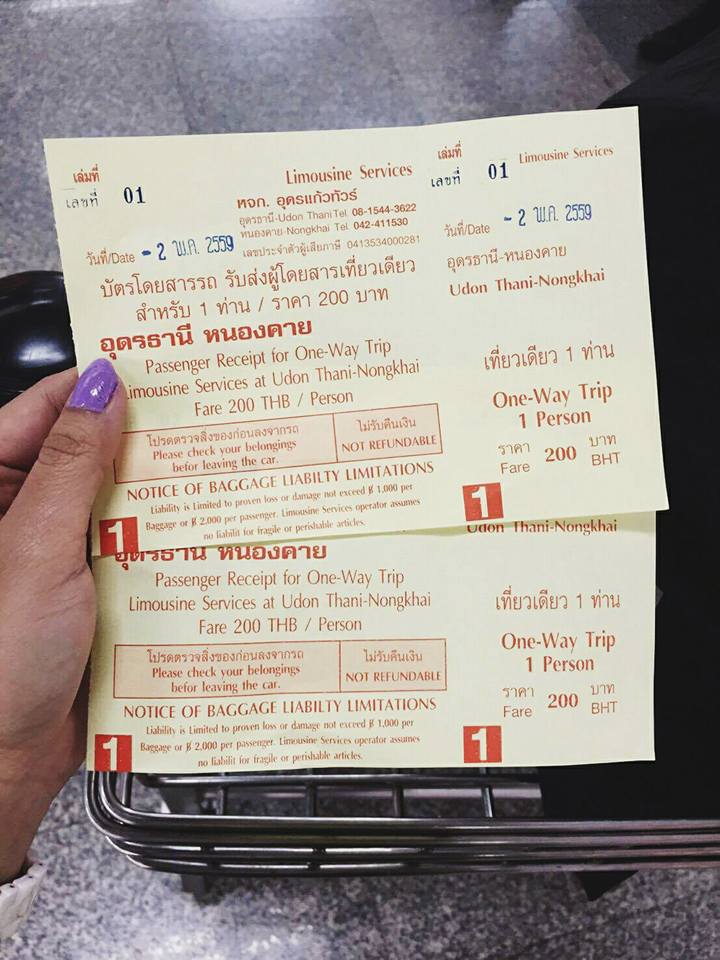 เล่มที่
เลขที่ 01
Limousine Services
หจก. อุดรแก้วทัวร์
อุดรธานี-Udon Thani Tel. 08-1544-3622
หนองคาย-Nongkhai Tel. 042-411530
วันที่/Date - 2 พ.ค. 2559
เลขประจำตัวผู้เสียภาษี 0413534000281
บัตรโดยสารรถ รับส่งผู้โดยสารเที่ยวเดียว
สำหรับ 1 ท่าน / ราคา 200 บาท
อุดรธานี หนองคาย
Passenger Receipt for One-Way Trip
Limousine Services at Udon Thani-Nongkhai
Fare 200 THB / Person
โปรดตรวจสิ่งของก่อนลงจากรถ
Please check your belongings
befor leaving the car.
ไม่รับคืนเงิน
NOT REFUNDABLE
NOTICE OF BAGGAGE LIABILTY LIMITATIONS
Liability is Limited to proven loss or damage not exceed ฿ 1,000 per
Baggage or ฿ 2,000 per passenger. Limousine Services operator assumes
no liabilit for fragile or perishable articles.
1
เล่มที่
เลขที่ 01
Limousine Services
วันที่/Date - 2 พ.ค. 2559
อุดรธานี-หนองคาย
Udon Thani-Nongkhai
เที่ยวเดียว 1 ท่าน
One-Way Trip
1 Person
ราคา 200 บาท
Fare BHT
1
อุดรธานี หนองคาย
Passenger Receipt for One-Way Trip
Limousine Services at Udon Thani-Nongkhai
Fare 200 THB / Person
โปรดตรวจสิ่งของก่อนลงจากรถ
Please check your belongings
befor leaving the car.
ไม่รับคืนเงิน
NOT REFUNDABLE
NOTICE OF BAGGAGE LIABILTY LIMITATIONS
Liability is Limited to proven loss or damage not exceed ฿ 1,000 per
Baggage or ฿ 2,000 per passenger. Limousine Services operator assumes
no liabilit for fragile or perishable articles.
1
Udon Thani-Nongkhai
เที่ยวเดียว 1 ท่าน
One-Way Trip
1 Person
ราคา 200 บาท
Fare BHT
1